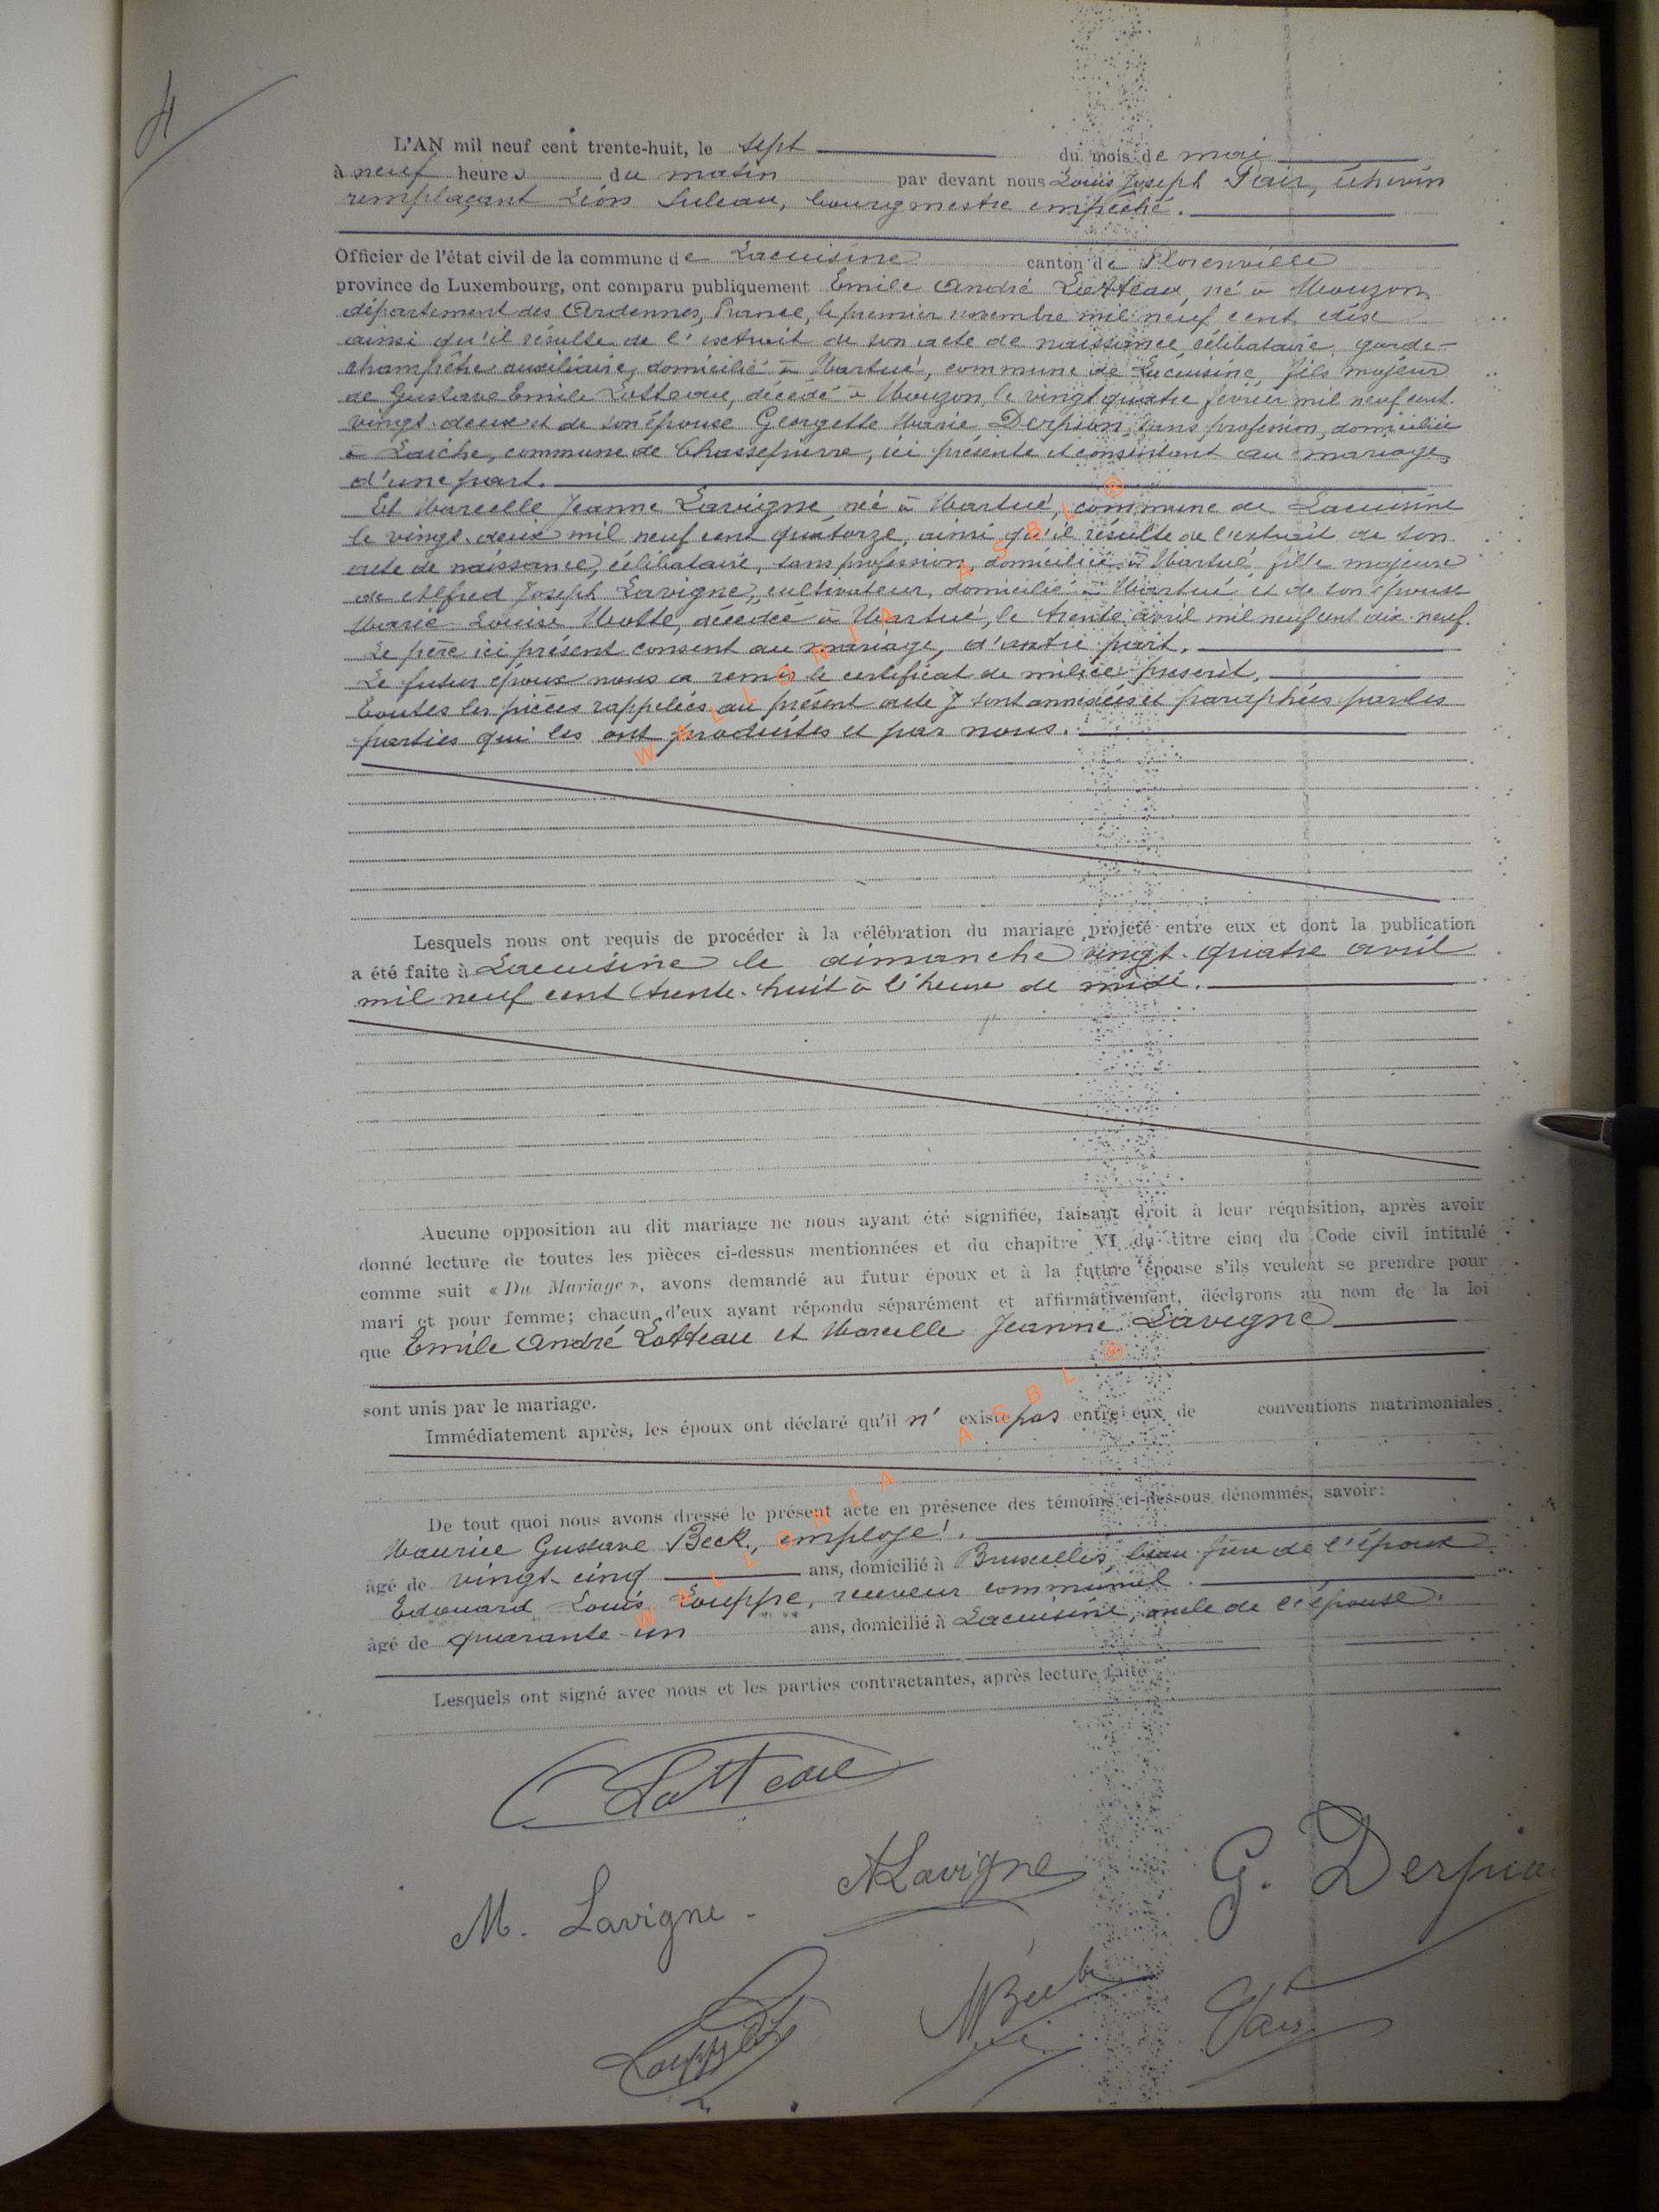 4
L'AN mil neuf cent trente-huit, le sept du mois de mai
à neuf heures du matin par devant nous Louis Joseph Pair, échevin
remplaçant Léon Suleau, bourgmestre empêché.
Officier de l'état civil de la commune de Lacuisine canton de Florenville
province de Luxembourg, ont comparu publiquement Emile André Lotteau, né à Mouzon
département des Ardennes, France, le premier novembre mil neuf cent dix
ainsi qu'il résulte de l'extrait de son acte de naissance, célibataire, garde-
champêtre auxiliaire, domicilié à Martué, commune de Lacuisine, fils majeur
de Gustave Emile Lotteau, décédé à Mouzon, le vingt quatre fevrier mil neuf cent
vingt-deux et de son épouse Georgette Marie Derpion, sans profession, domiciliée
à Laiche, commune de Chassepierre, ici présente et consentant au mariage,
d'une part.
Et Marcelle Jeanne Lavigne, né à Martué, commune de Lacuisine
le vingt-deux mil neuf cent quatorze, ainsi qu'il résulte de l'extrait de son
acte de naissance, célibataire, sans profession, domiciliée à Martué fille majeure
de Alfred Joseph Lavigne, cultivateur, domicilié à Martué et de son épouse
Marie-Louise Motte, décédée à Martué, le trente avril mil neuf cent dix-neuf.
Le père ici présent consent au mariage, d'autre part.
Le futur époux nous a remis le certificat de milice prescrit.
Toutes les pièces rappelées au présent acte y sont annexées et paraphées par les
parties qui les ont produites et par nous.
Lesquels nous ont requis de procéder à la célébration du mariage projeté entre eux et dont la publication
a été faite à Lacuisine le dimanche vingt-quatre avril
mil neuf cent trente-huit à l'heure de midi.
Aucune opposition au dit mariage ne nous ayant été signifiée, faisant droit à leur réquisition, après avoir
donné lecture de toutes les pièces ci-dessus mentionnées et du chapitre VI du titre cinq du Code civil intitulé
comme suit « Du Mariage », avons demandé au futur époux et à la future épouse s'ils veulent se prendre pour
mari et pour femme; chacun d'eux ayant répondu séparément et affirmativement, déclarons au nom de la loi
que Emile André Lotteau et Marcelle Jeanne Lavigne
sont unis par le mariage.
Immédiatement après, les époux ont déclaré qu'il n' existe pas entre eux de conventions matrimoniales
De tout quoi nous avons dressé le présent acte en présence des témoins ci-dessous dénommés, savoir:
Maurice Gustave Beck, employé.
âgé de vingt-cinq ans, domicilié à Bruxelles, beau-frère de l'époux
Edouard Louis Louppe, receveur communal.
âgé de quarante-un ans, domicilié à Lacuisine, oncle de l'épouse.
Lesquels ont signé avec nous et les parties contractantes, après lecture faite
Lotteau
M. Lavigne ALavigne G. Derpion
Louppe MBeck Pair
WALLONIA ASBL ®
WALLONIA ASBL ®